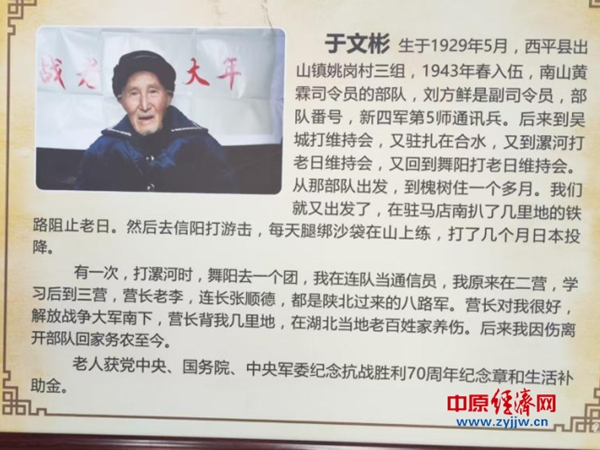 战老
大年
于文彬 生于1929年5月，西平县出
山镇姚岗村三组，1943年春入伍，南山黄
霖司令员的部队，刘方鲜是副司令员，部
队番号，新四军第5师通讯兵。后来到吴
城打维持会，又驻扎在合水，又到漯河打
老日维持会，又回到舞阳打老日维持会。
从那部队出发，到槐树住一个多月。我们
就又出发了，在驻马店南扒了几里地的铁
路阻止老日。然后去信阳打游击，每天腿绑沙袋在山上练，打了几个月日本投
降。
有一次，打漯河时，舞阳去一个团，我在连队当通信员，我原来在二营，学
习后到三营，营长老李，连长张顺德，都是陕北过来的八路军。营长对我很好，
解放战争大军南下，营长背我几里地，在湖北当地老百姓家养伤。后来我因伤离
开部队回家务农至今。
老人获党中央、国务院、中央军委纪念抗战胜利70周年纪念章和生活补
助金。
中原经济网
www.zyjjw.cn